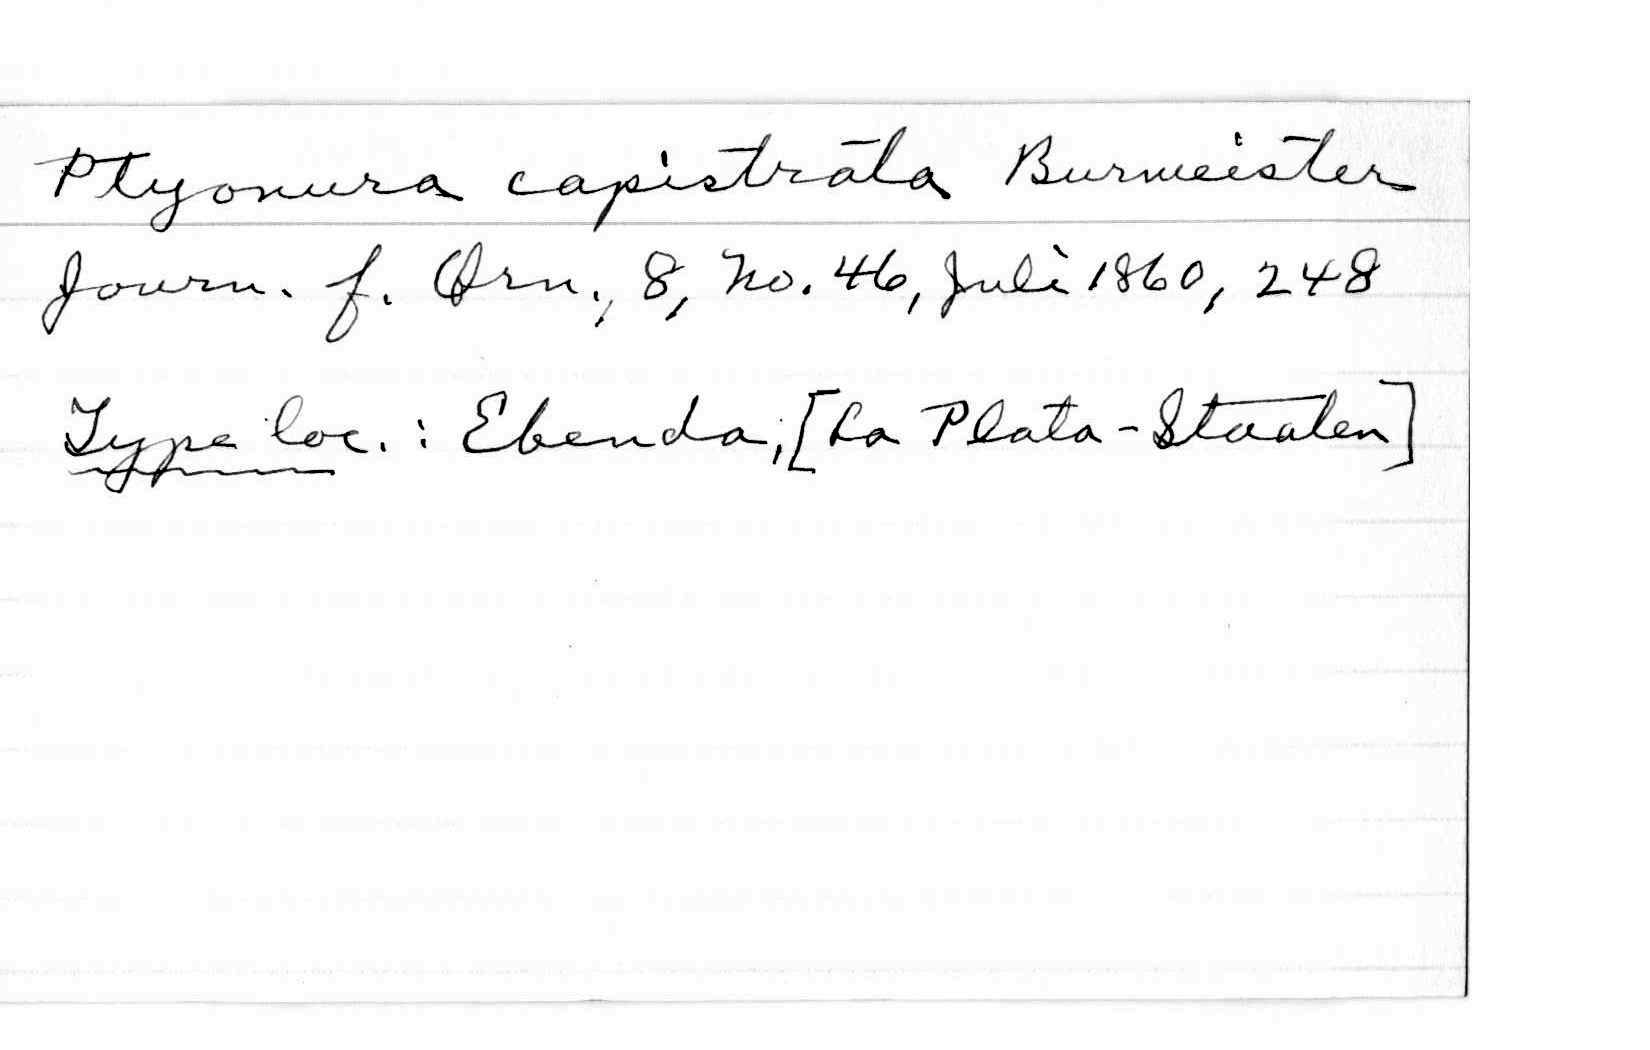 Ptyonura capistrata Burmeister
Journ. f. Orn., 8, no. 46, Juli 1860, 248
Type loc. : Ebenda, [La Plata-Staaten]